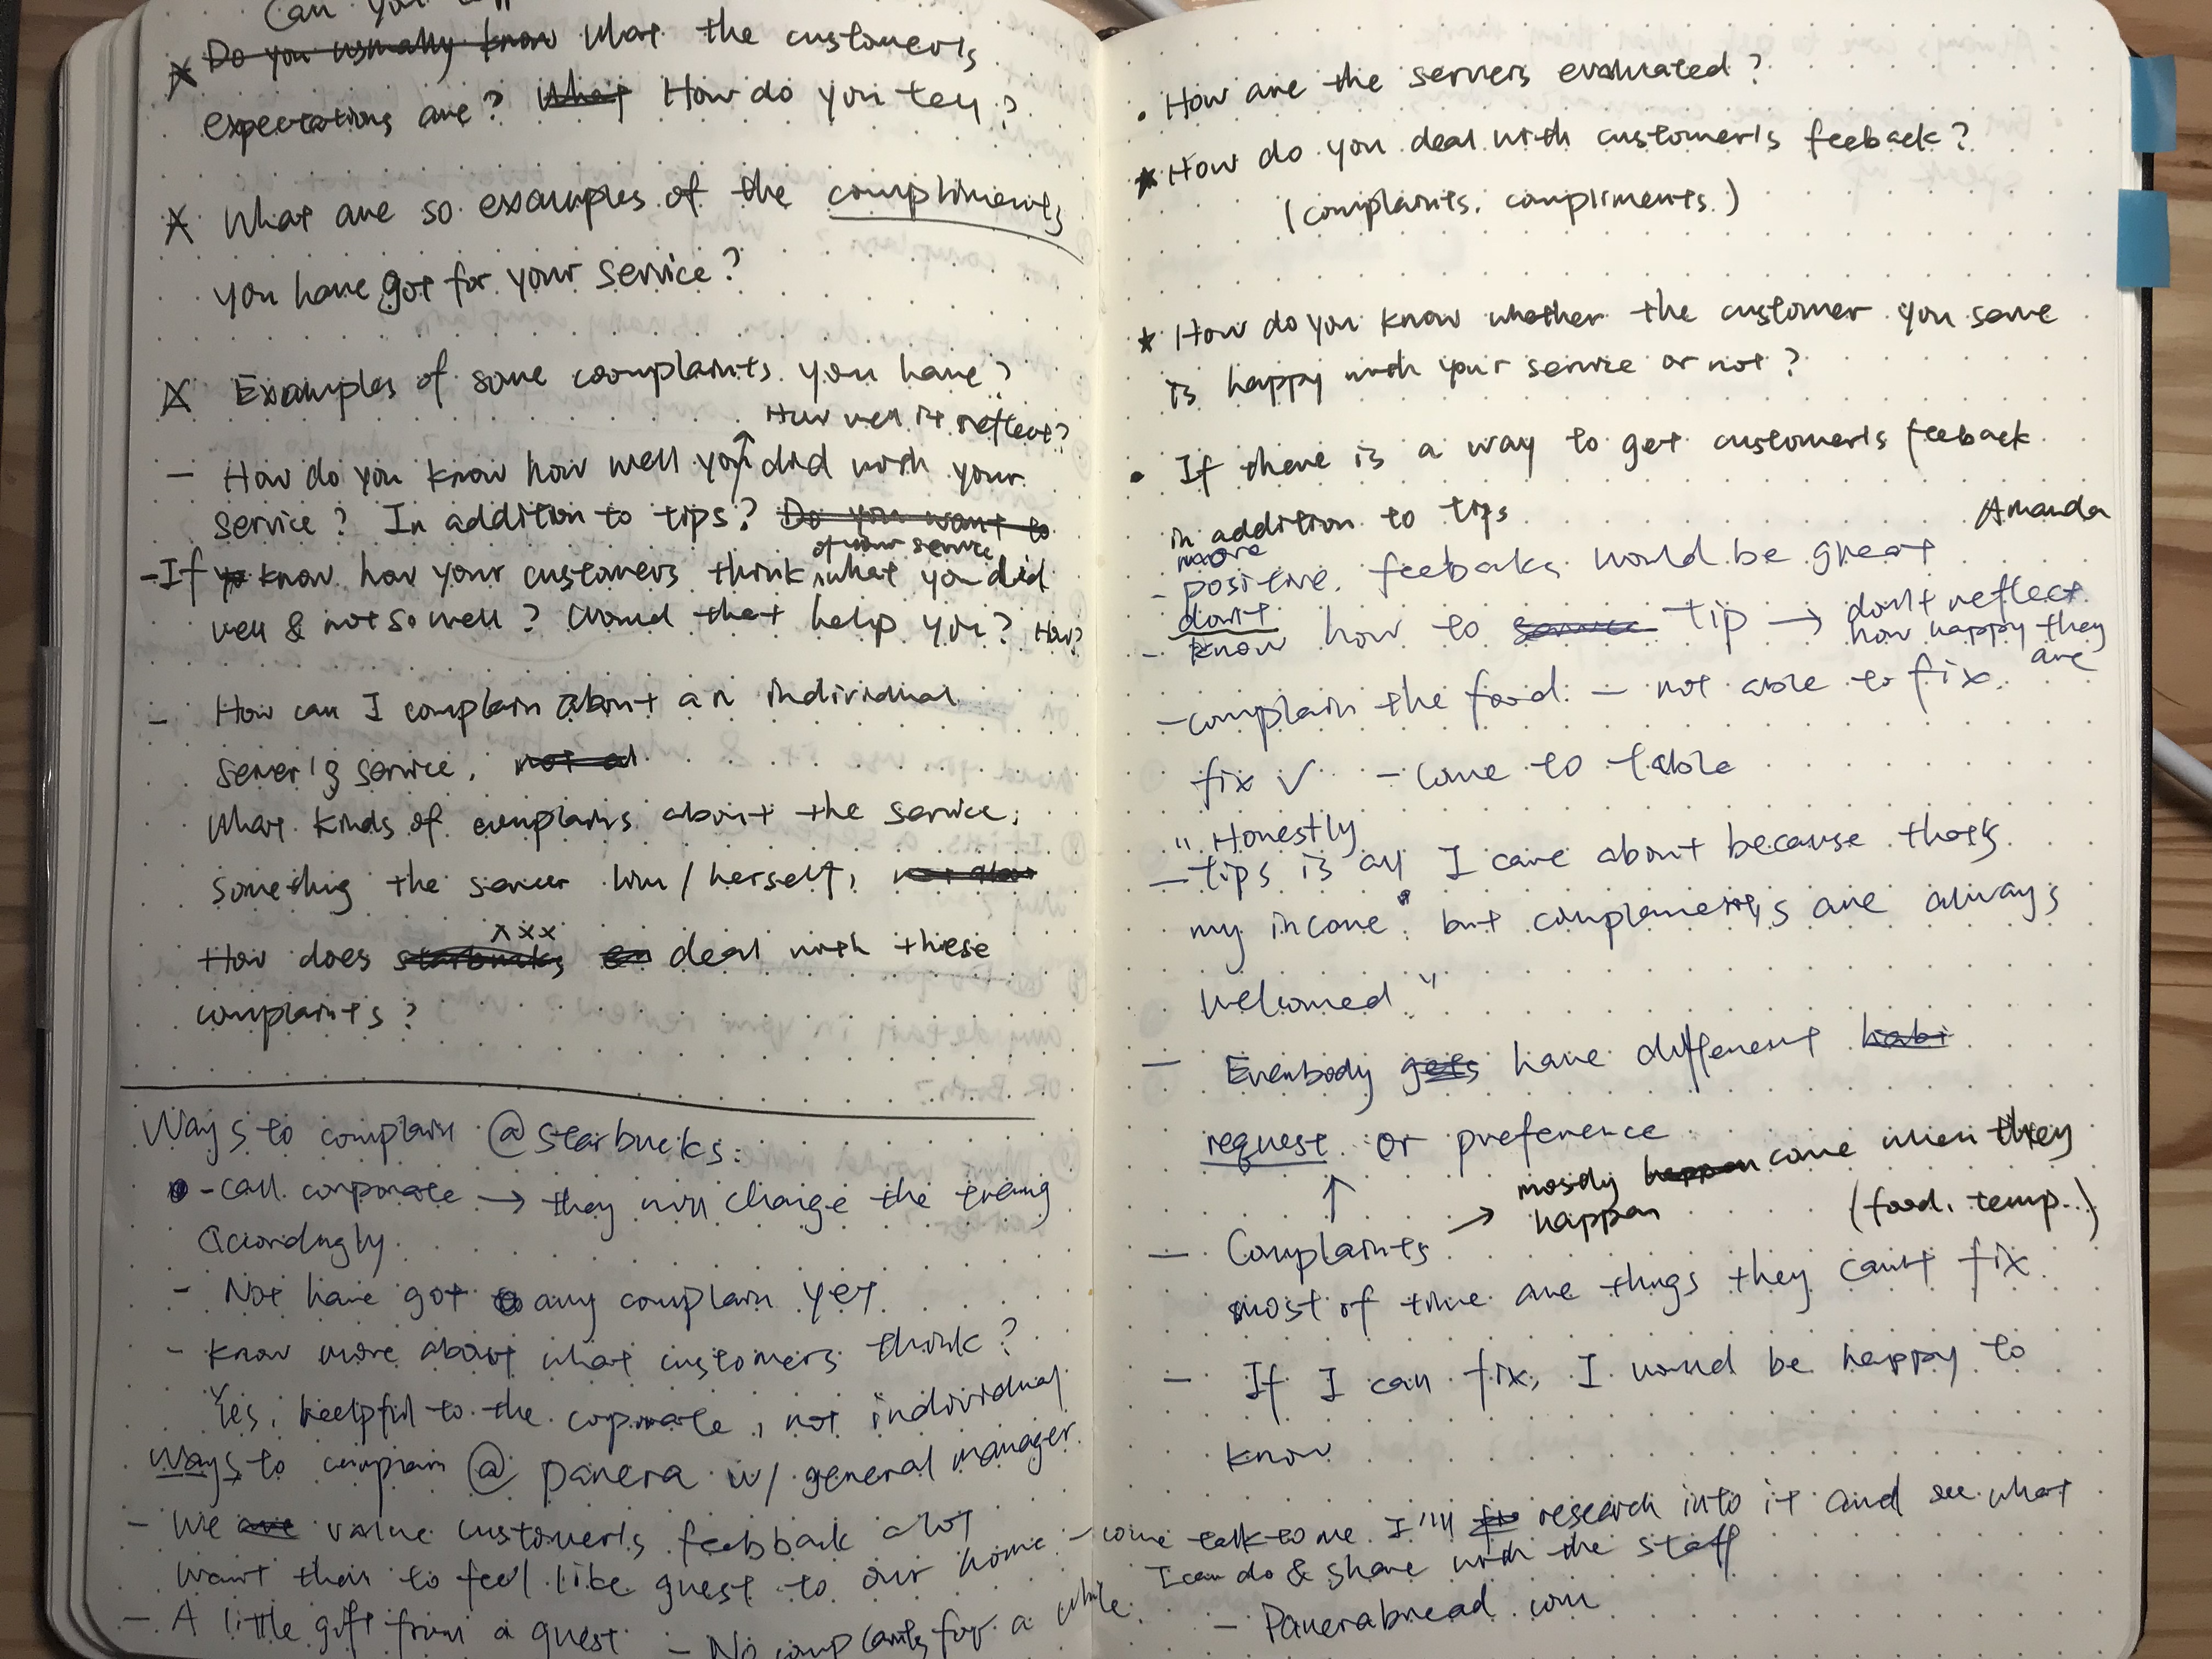 Can you
Do you usually know what the customer's
expectations are? What How do you tell?
What are so examples of the compliments
you have got for your service?
Examples of some coomplaints you have?
How well it reflect?
- How do you know how well you did with your
service? In addition to tips? Do you want to
of your service
- If yo know how your customers think what you did
well & not so well? Would that help you? How?
- How can I complain about an individual
server's service.
What kinds of complains about the service;
something the server him/herself,
xxx
How does starbucks deal with these
complaints?
Ways to complain @ starbucks:
- call corporate → they will change the
accordingly.
- Not have got any complain yet
- know more about what customers think?
Yes, heelpful to the corporate, not individual
Ways to complain @ panera w/ general manager.
- We are value customer's feebback alot
want them to feel like guest to our home
- A little gift from a guest - No complaints for a while.
• How are the servers evaluated?
★ How do you deal with customer's feeback?
(complaints. compliments.)
★ How do you know whether the customer you serve
is happy with your service or not?
• If there is a way to get customer's feeback
in addition to tips
Amanda
more
- positive. feebacks would be great
don't
- know how to service tip → don't reflect
how happy they
are
- complain the food. - not able to fix.
fix ✓ - come to table
" Honestly
- tips is all I care about because that's
my income" but complements are always
welcomed."
- Everybody gets have different habi
request or preference
↑
→ mostly happen come when they
happen (food. temp..)
- Complaints
most of time are things they can't fix
- If I can fix, I would be happy to
know
- come talk to me. I'll research into it and see what
I can do & share with the staff
- Panerabread.com